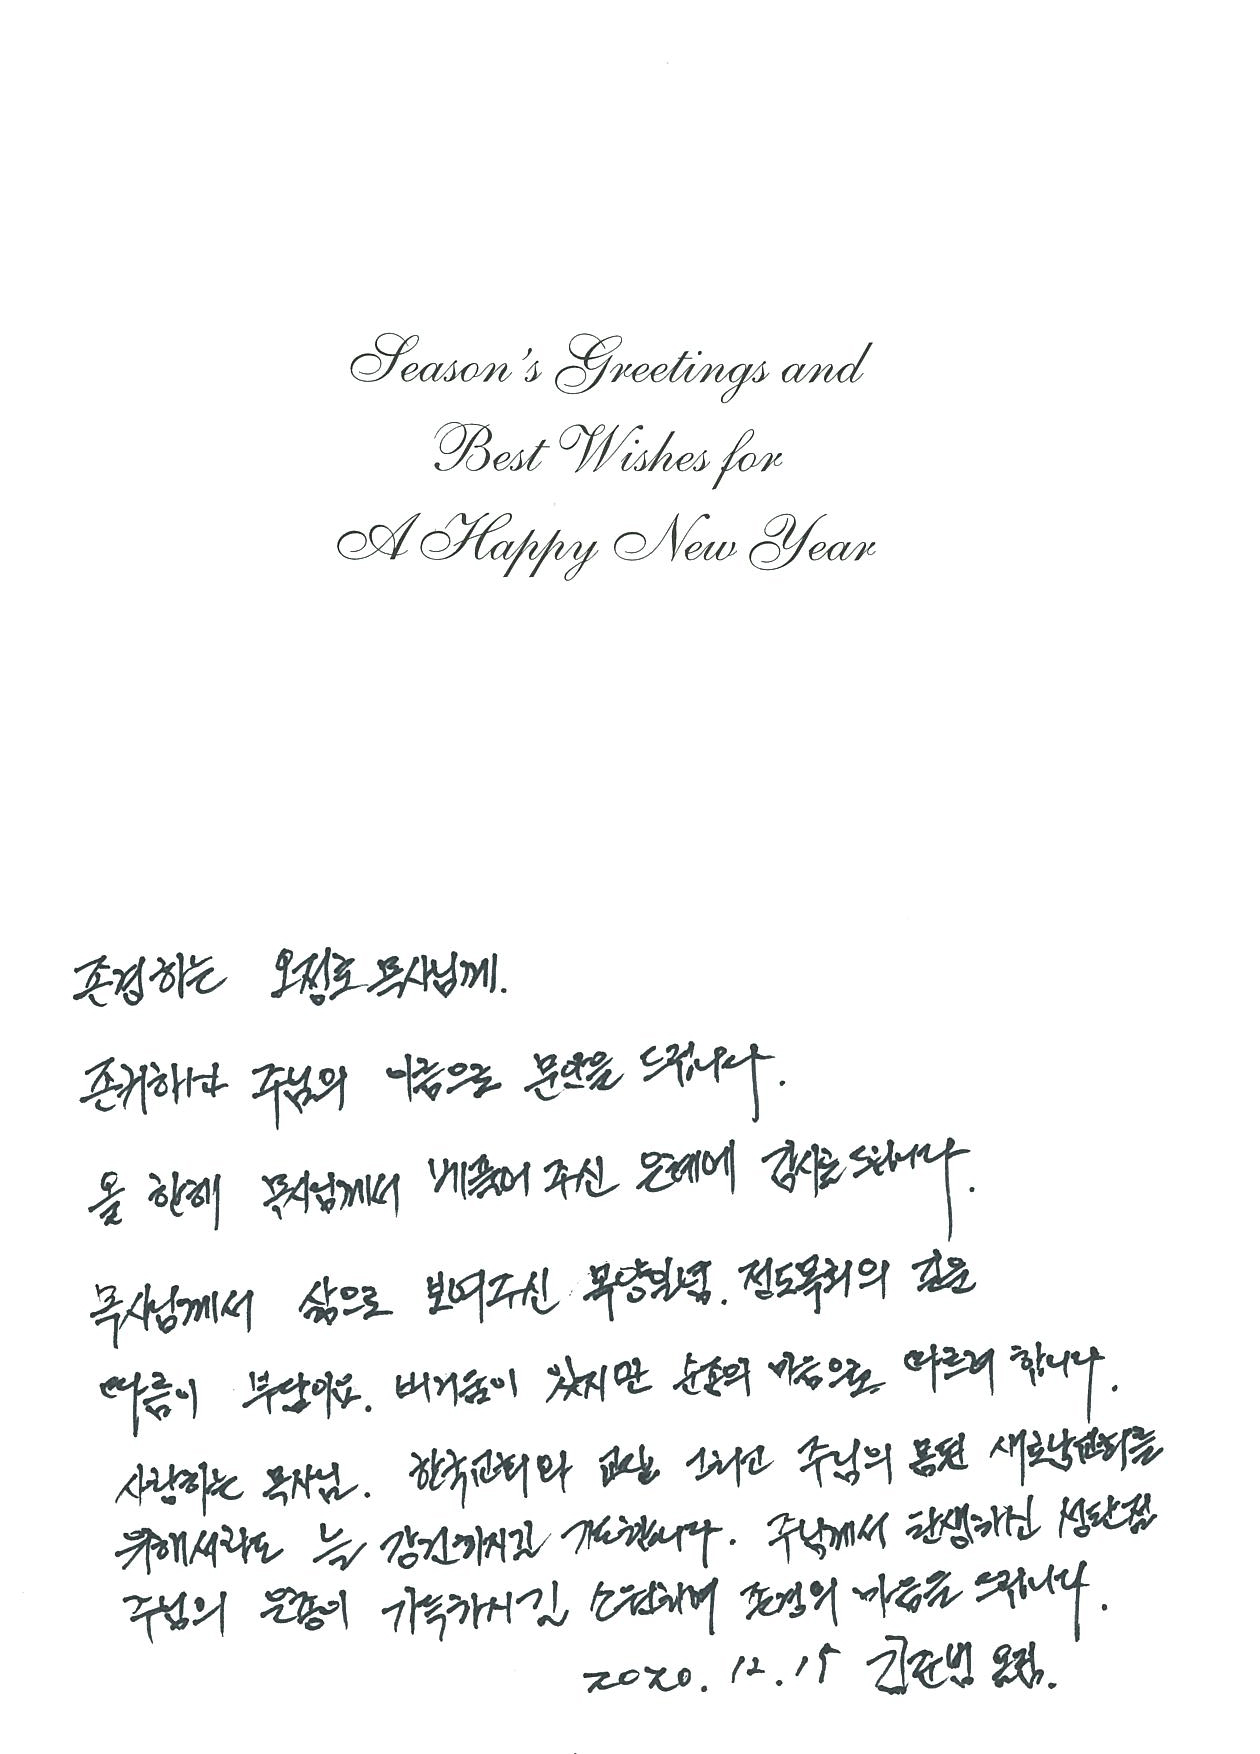 Season's Greetings and
Best Wishes for
A Happy New Year
존경하는 오정호 목사님께.
존귀하신 주님의 이름으로 문안을 드립니다.
올 한해 목사님께서 베풀어 주신 은혜에 감사를 드립니다.
목사님께서 삶으로 보여주신 목양일념. 정도목회의 길을
따름이 부담이요. 버거움이 있지만 순종의 마음으로 따르려 합니다.
사랑하는 목사님. 한국교회와 교단 그리고 주님의 몸된 새로남교회를
위해서라도 늘 강건하시길 기도합니다. 주님께서 탄생하신 성탄절
주님의 은총이 가득하시길 소원하며 존경의 마음을 드립니다.
2020. 12. 15 올림.